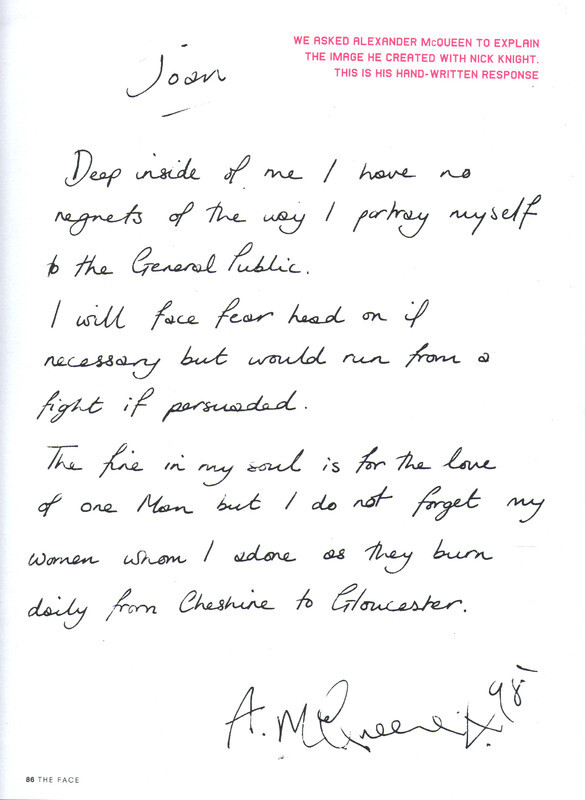 Joan
WE ASKED ALEXANDER McQUEEN TO EXPLAIN
THE IMAGE HE CREATED WITH NICK KNIGHT.
THIS IS HIS HAND-WRITTEN RESPONSE
Deep inside of me I have no
regrets of the way I portray myself
to the General Public.
I will face fear head on if
necessary but would run from a
fight if persuaded.
The fire in my soul is for the love
of one Man but I do not forget my
women whom I adore as they burn
daily from Cheshire to Gloucester.
A. McQueen 98
86 THE FACE